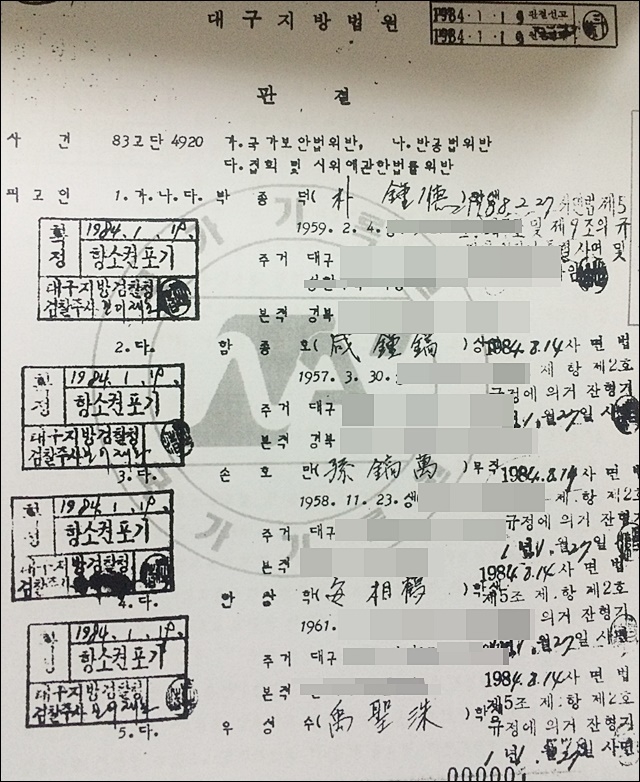 대구지방법원
1984.1.19 판결선고
1984.1.19
판 결
사 건 83고단4920 가.국가보안법위반, 나.반공법위반
다.집회 및 시위에관한법률위반
피고인 1.가.나.다. 박 종 덕(朴鍾德)학생 1988.2.27 제5
1959. 2. 4. 및 제9조의 규
확정 1984. 1. 19. 항소권포기
대구지방검찰청
검찰주사
주거 대구 사면 및
본적 경북
2.다. 함 종 호(咸鍾鎬) 1984.8.14 사면법
1957. 3. 30. 제 항 제2호
확정 1984. 1. 19. 항소권포기
대구지방검찰청
검찰주사
주거 대구 규정에 의거 잔형기
본적 경북 월 27일 사
3.다 손 호 만(孫鎬萬)무직 1984.8.14 사면법
1958. 11. 23.생 제 항 제2호
1984. 1. 19. 항소권포기
대구지방검찰청
주거 대구 규정에 의거 잔형기
본적 1년 1월 27일 사
4.다. 안 상 학(安相鶴)학생 1984.8.14 사면법
제5조 제 항 제2호
1961. 의거 잔형기
1984. 1. 19. 항소권포기
대구지방검찰청
검찰주사
주거 대구 월 27일 사
본적 1984.8.14 사면법
5.다. 우 성 수(禹聖洙) 제5조 제 항 제2호
규정에 의거 잔형기
1년 1월 27일 사
00001